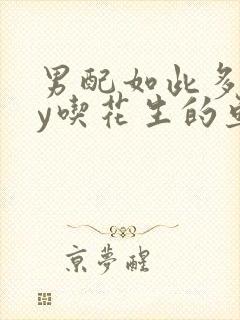 男配如此多
y喫花生的
京夢醒